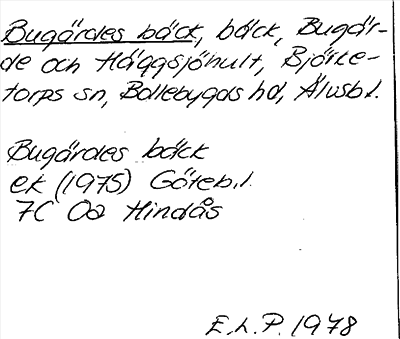 Bugärdes bäck, bäck, Bugär-
de och Häggsjöhult, Björke-
torps sn, Bollebygds hd, Älvsb.l.
Bugärdes bäck
ek (1975) Göteb.l.
7C 0a Hindås
E.L.P. 1978